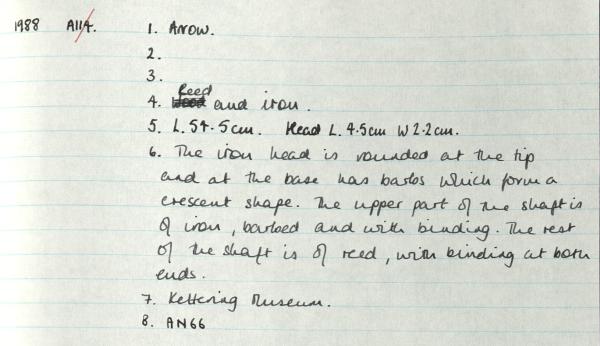 1988 A114. 1. Arrow.
2.
3.
Reed
4. and iron.
5. L. 54.5cm. Head L. 4.5cm W 2.2cm.
6. The iron head is rounded at the tip
and at the base has barbs which form a
crescent shape. The upper part of the shaft is
of iron, barbed and with binding. The rest
of the shaft is of reed, with binding at both
ends.
7. Kettering Museum.
8. AN66